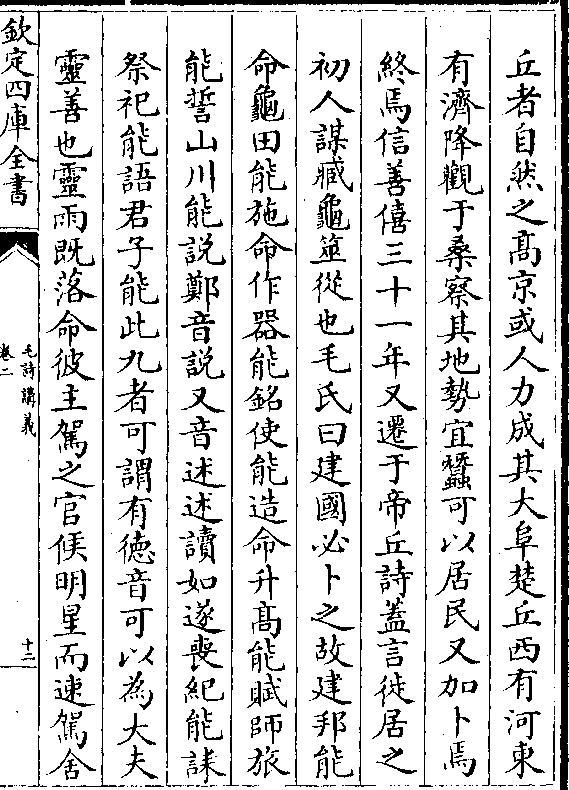 丘者自然之髙京或人力成其大阜楚丘西有河東
有濟降觀于桑察其地勢宜蠶可以居民又加卜焉
終焉信善僖三十一年又遷于帝丘詩蓋言徙居之
初人謀臧龜筮從也毛氏曰建國必卜之故建邦能
命龜田能施命作器能銘使能造命升髙能賦師旅
能誓山川能説鄭音説又音述述讀如遂喪紀能誄
祭祀能語君子能此九者可謂有德音可以為大夫
靈善也靈雨既落命彼主駕之官俟明星而速駕舍
欽定四庫全書
毛詩講義
卷二
十二